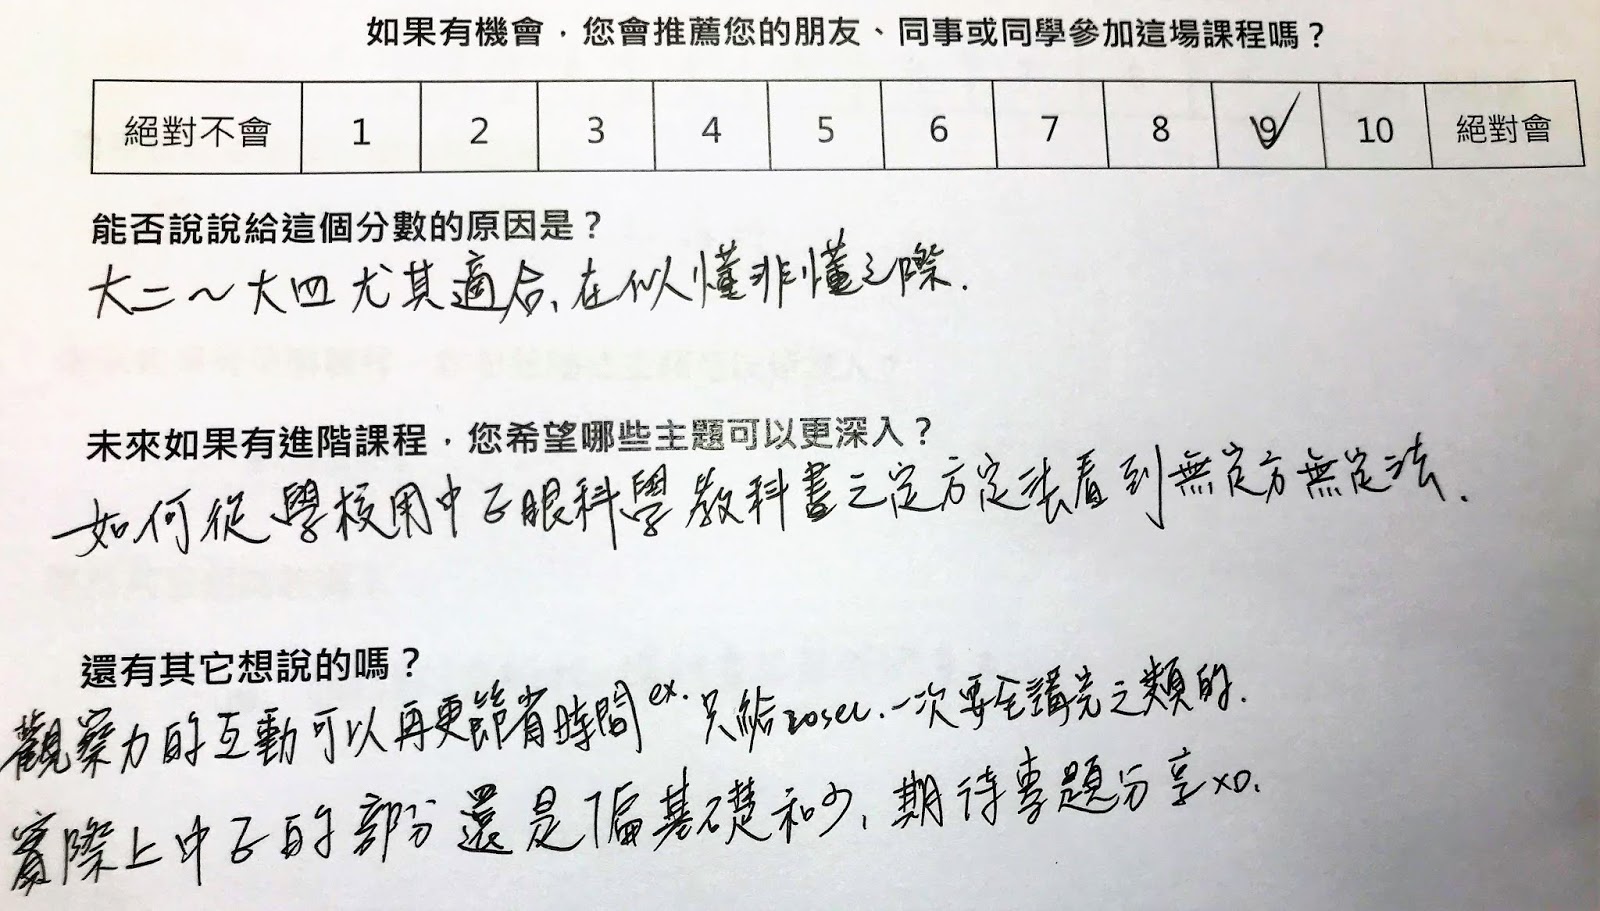 如果有機會，您會推薦您的朋友、同事或同學參加這場課程嗎？
絕對不會 1 2 3 4 5 6 7 8 9 10 絕對會
能否說說給這個分數的原因是？
大二～大四尤其適合、在似懂非懂之際.
未來如果有進階課程，您希望哪些主題可以更深入？
如何從學校用中子眼科學教科書之定方定法看到無定方無定法.
還有其它想說的嗎？
觀察力的互動可以再更節省時間 ex. 只給20sec. 一次要全講完之類的.
實際上中子的部分還是偏基礎和少, 期待專題分享XD.